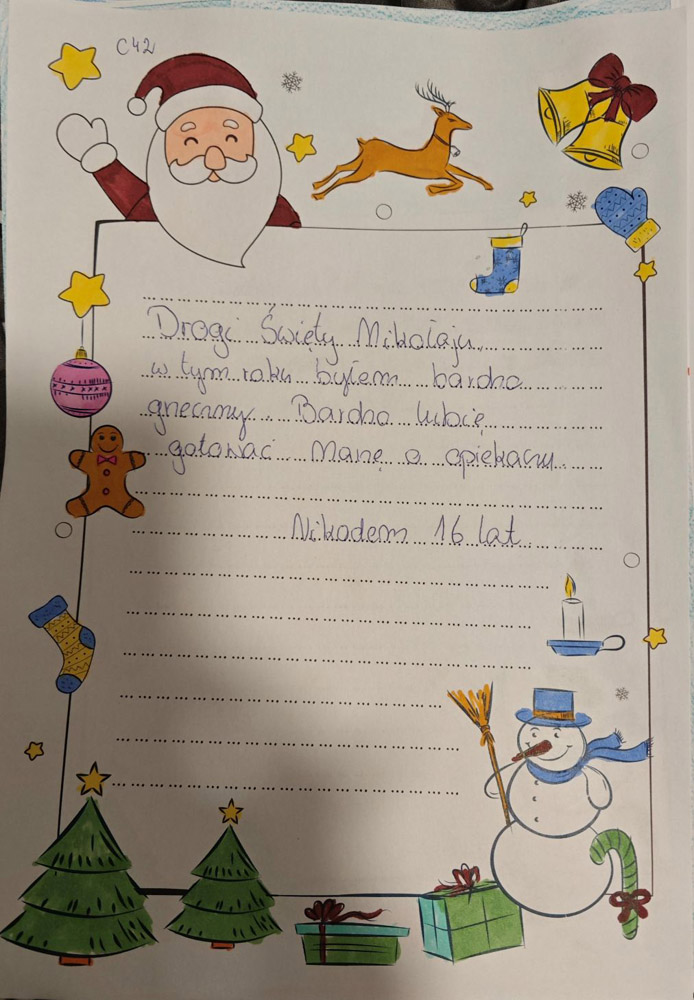 C42
Drogi Święty Mikołaju
w tym roku byłem bardzo
grzeczny. Bardzo lubię
gotować Marzę o opiekaczu.
Nikodem 16 lat.